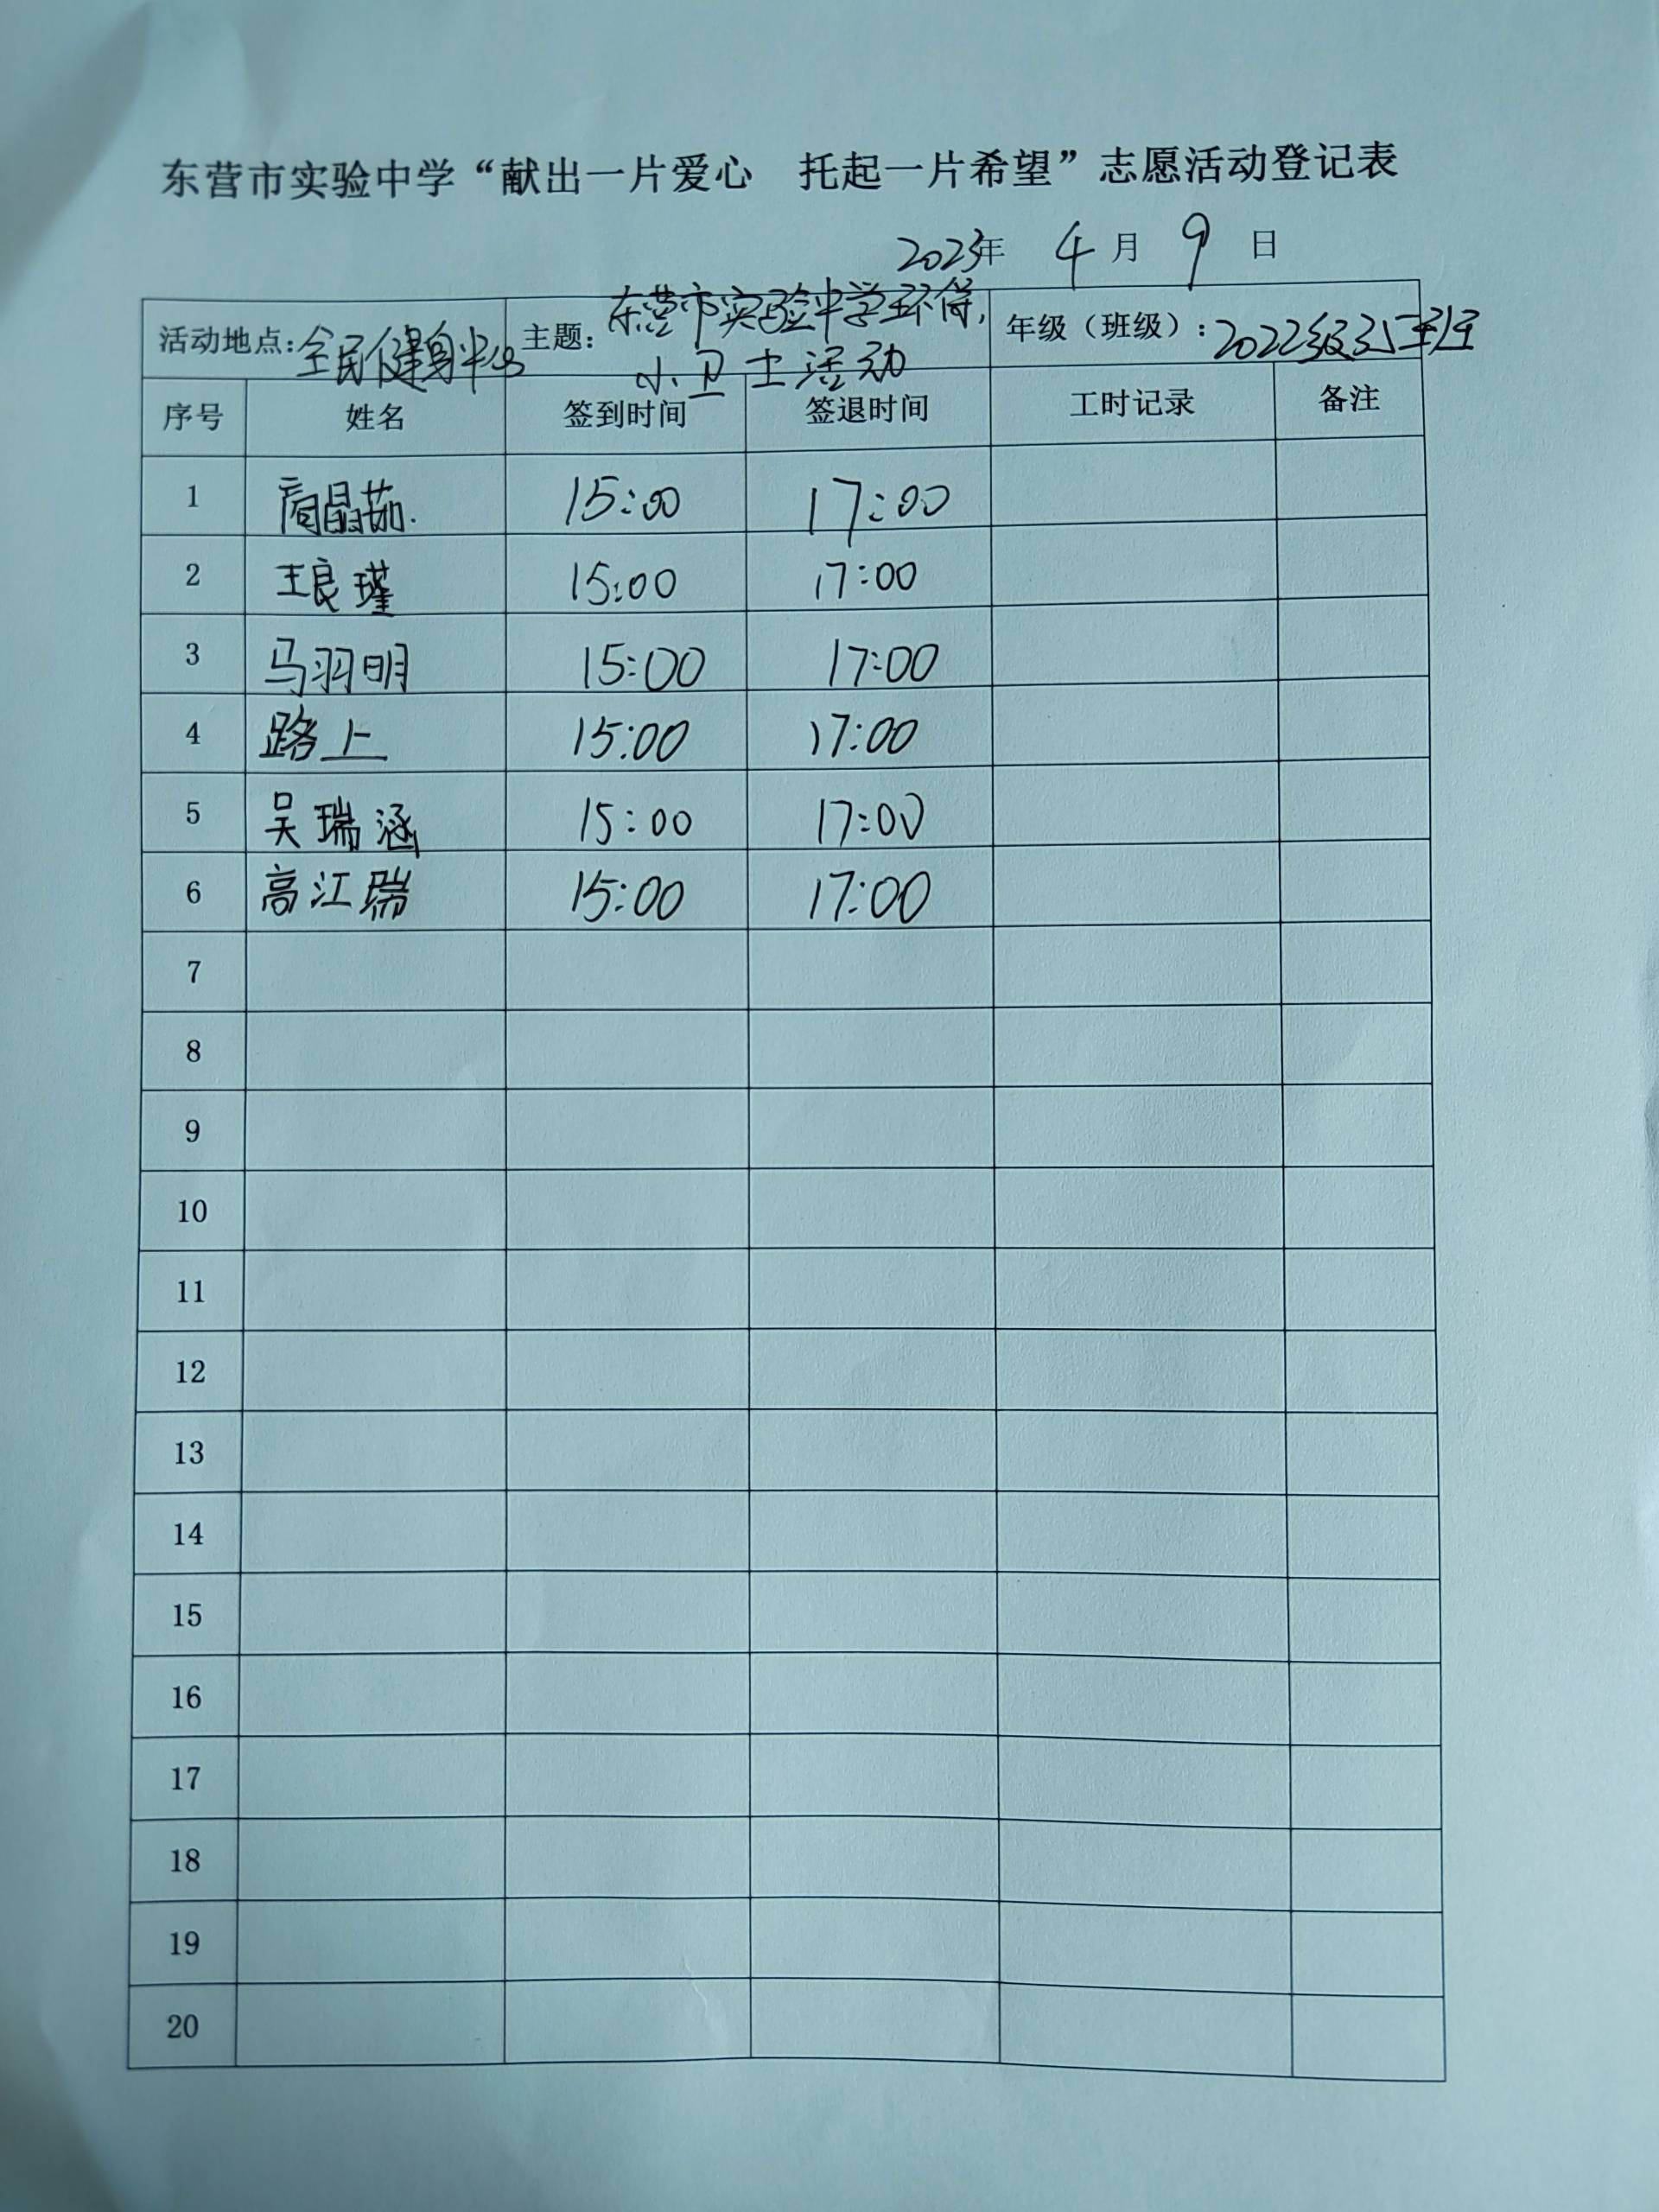 东营市实验中学“献出一片爱心 托起一片希望”志愿活动登记表
2023年 4月 9日
活动地点:全民健身中心 主题:东营市实验中学环保小卫士活动 年级（班级）:2022级
序号 姓名 签到时间 签退时间 工时记录 备注
1 晶茹 15:00 17:00
2 王良瑾 15:00 17:00
3 马羽明 15:00 17:00
4 路上 15:00 17:00
5 吴瑞涵 15:00 17:00
6 高江瑞 15:00 17:00
7
8
9
10
11
12
13
14
15
16
17
18
19
20